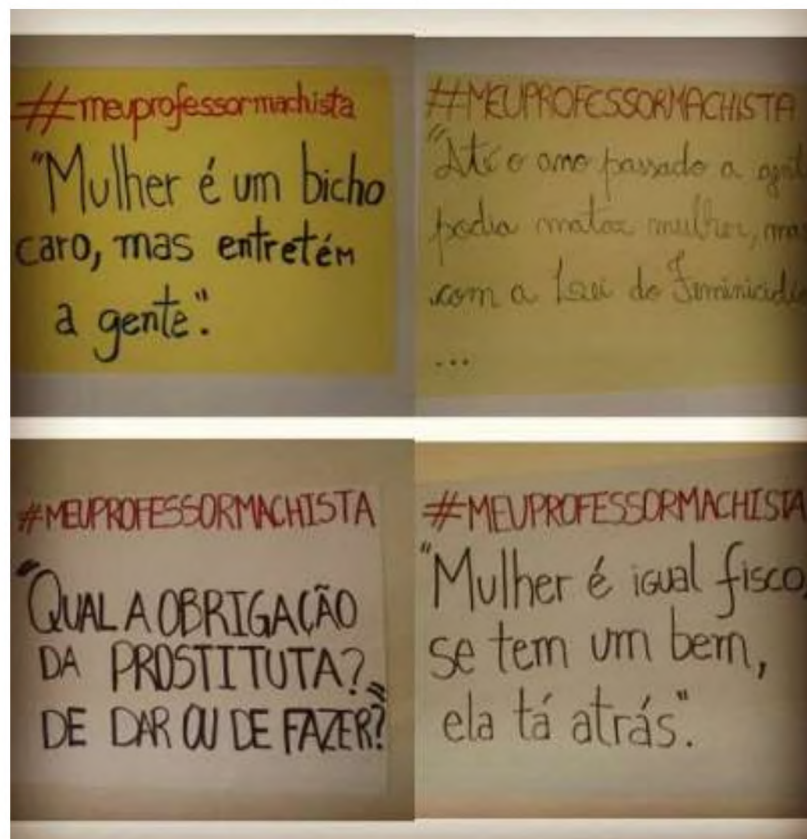 #meuprofessormachista
"Mulher é um bicho
caro, mas entretém
a gente".
#MEUPROFESSORMACHISTA
"Até o ano passado a gent
podia matar mulher, mas
com a Lei do Feminicídio
...
#MEUPROFESSORMACHISTA
"QUAL A OBRIGAÇÃO
DA PROSTITUTA?
DE DAR OU DE FAZER?"
#MEUPROFESSORMACHISTA
"Mulher é igual fisco,
se tem um bem,
ela tá atrás".